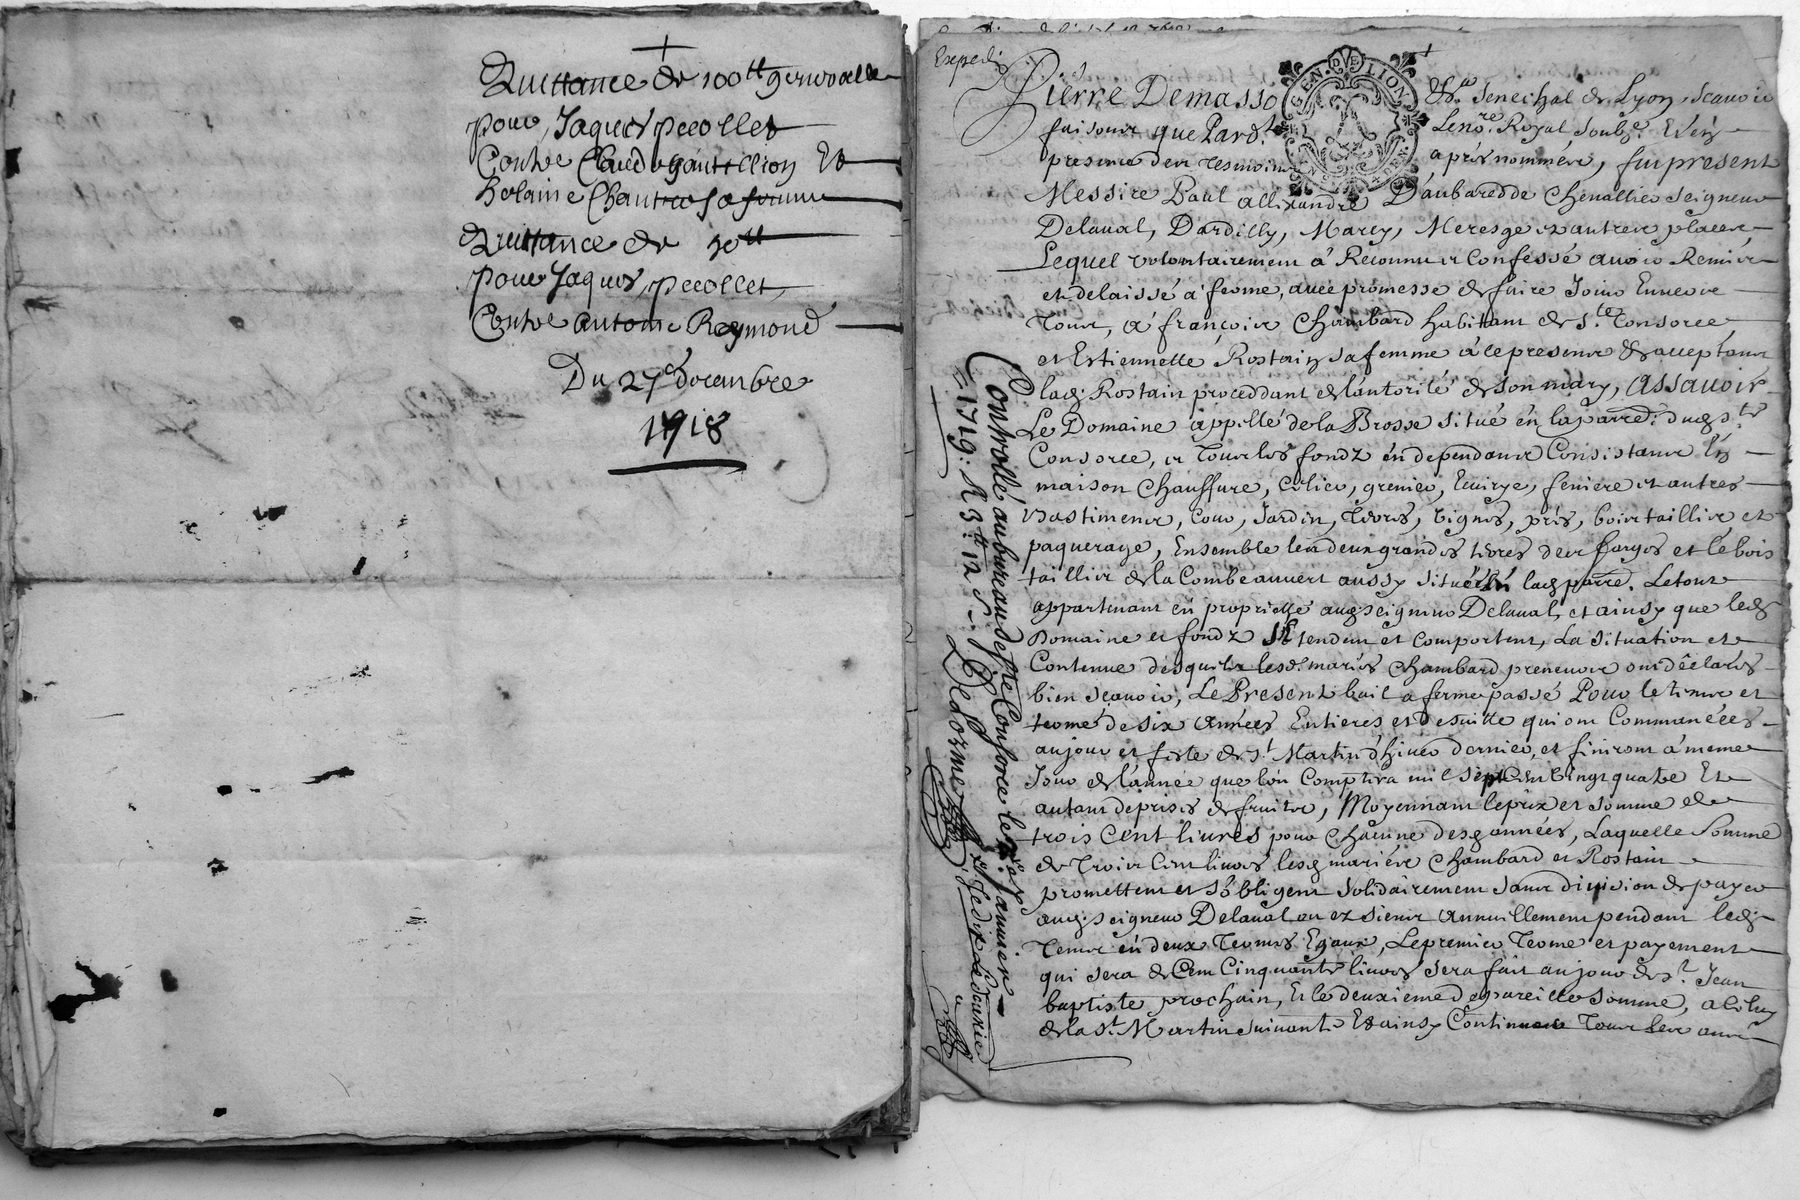 Quittance de 100tt
pour Jaques pecollet
Contre Claude gautillion Et
helaine Chantre sa femme
Quittance de 50tt
pour Jaques pecollet
Contre antoine Reymond
Du 27e decembre
1718
Expedié
GEN. DE LION
Pierre Demasso &a. Senechal de Lyon, scauoir
faisons que Pardt Lenore. Royal soubze. Et en
presence des tesmoins aprés nommés, fut present
Messire Paul allixandre Daubaredde Cheuallier seigneur
Delaual, Dardilly, Marcy, Meresge et autres places
Lequel volontairement á Reconnu et Confessé auoir Remis
et delaissé á ferme, auec promesse de faire Jouir Enuers
tous, á françois Chambard habittant de Ste. Consorce
et Estiennette Rostaing sa femme á ce presents & acceptant
lad. Rostain proceddant de l'autorité de son mary, Assauoir
Le Domaine appellé de la Brosse situé en la parre. dud. ste
Consorce, et tous les fondz en dependants Consistants En
maison chauffure, Celier, grenier, Ecurye, feniere et autres
Bastiments, Cour, Jardin, terres, vignes, prés, bois taillis et
paquerage, Ensemble les deux grandes terres des farges et le bois
taillis de la Combe auuert aussy situés en lad. parre. Le tout
appartenant en proprietté aud. seigneur Delaual, et ainsy que led.
Domaine et fondz s'Etendent et Comportent, La situation et
Contenue desquels lesd. mariés Chambard preneurs ont déclarés
bien scauoir, Le Present bail a ferme passé Pour le temps et
terme de six années Entieres et de suitte qui ont Commancées
aujour et feste de st Martin d'hiuer dernier, et finiront á meme
Jour de l'année que lón Comptera mil sept Cent vingt quatre Et
autant de prises de fruits, Moyennant le prix et somme de
trois cent liures pour chácune desd. années, Laquelle Somme
de trois Cent liures lesd. mariés Chambard et Rostain
promettent et s'óbligent solidairement sans diuision de payer
aud. seigneur Delaual ou ez siens annuellement pendant led.
temps en deux termes Egaux, Le premier terme et payement
qui sera de Cent Cinquante liures sera fait au jour de st. Jean
baptiste prochain, Et le deuxieme de pareille somme, a Celuy
de la st. Martin suiuant Et ainsy Continuer tous les ans
Controllé au bureau de Ste Consorce le Janvier
1719: R 3tt: 12 s. Delorme